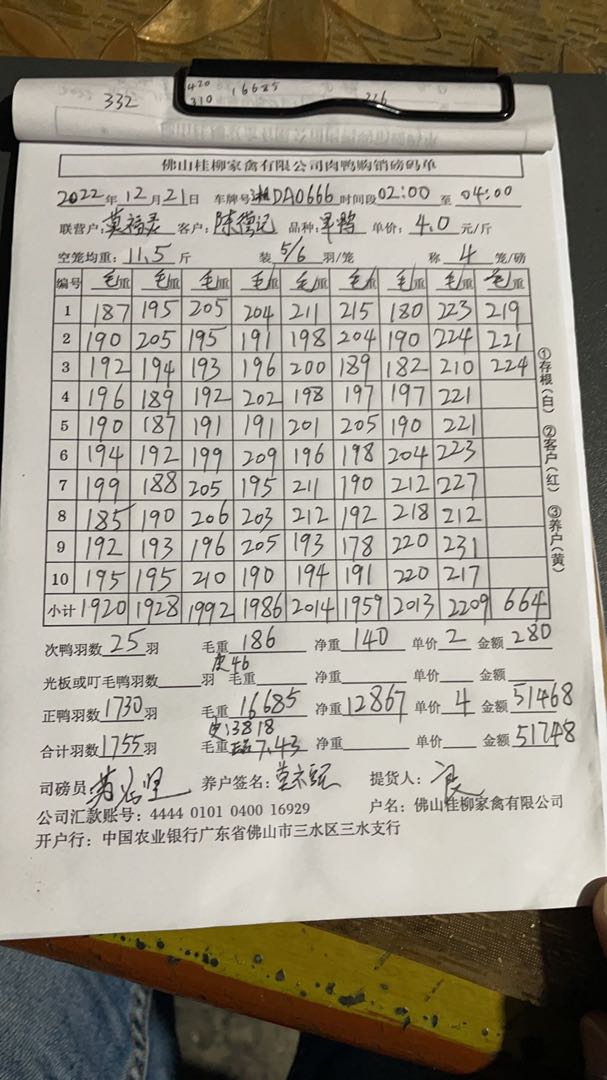 332
420
310
16685
佛山桂柳家禽有限公司肉鸭购销磅码单
2022年12月21日 车牌号湘DA0666时间段02:00至04:00
联营户:莫福灵 客户:陈德记 品种: 单价:4.0元/斤
空笼均重:11.5斤 装5/6羽/笼 称4笼/磅
编号 毛重 毛重 毛重 毛重 毛重 毛重 毛重 毛重 毛重
1 187 195 205 204 211 215 180 223 219
2 190 205 195 191 198 204 190 224 221
3 192 194 193 196 200 189 182 210 224
4 196 189 192 202 198 197 197 221
5 190 187 191 191 201 205 190 221
6 194 192 199 209 196 198 204 223
7 199 188 205 195 211 190 212 227
8 185 190 206 203 212 192 218 212
9 192 193 196 205 193 178 220 231
10 195 195 210 190 194 191 220 217
小计 1920 1928 1992 1986 2014 1959 2013 2209 664
①存根(白) ②客户(红) ③养户(黄)
次鸭羽数25羽 毛重186 净重140 单价2 金额280
皮46
光板或叮毛鸭羽数 羽 毛重 净重 单价 金额
正鸭羽数1730羽 毛重16685 净重12867 单价4 金额51468
皮:3818
合计羽数1755羽 毛重 7.43 净重 单价 金额51748
司磅员: 养户签名: 提货人:
公司汇款账号:4444 0101 0400 16929 户名:佛山桂柳家禽有限公司
开户行:中国农业银行广东省佛山市三水区三水支行